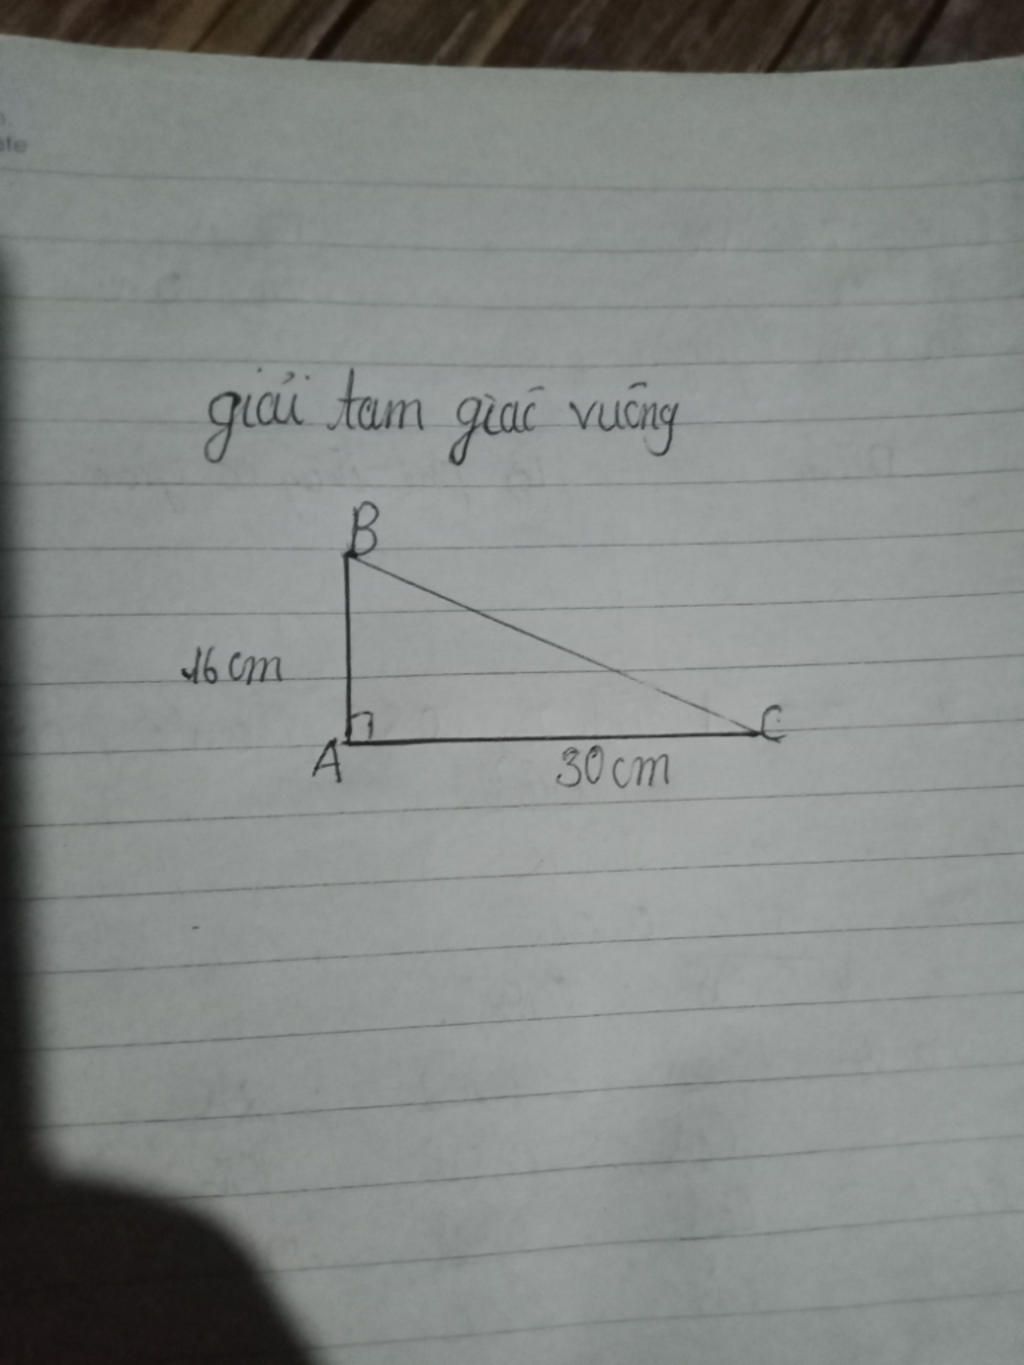 giải tam giác vuông
B
16cm
A
C
30cm